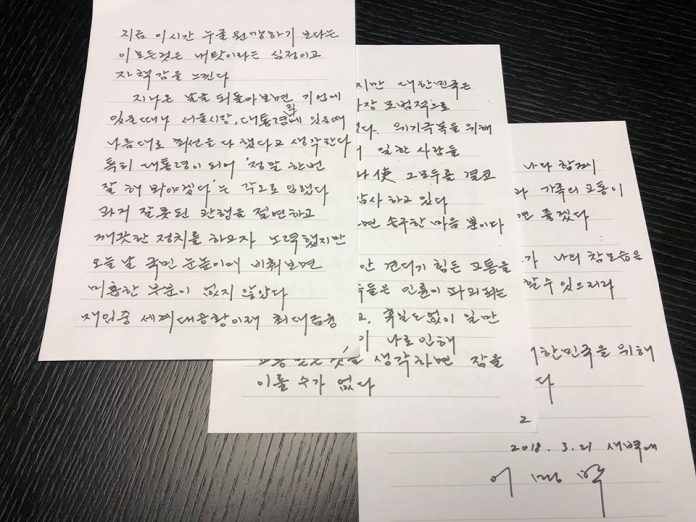 지금 이시간 누굴 원망하기 보다는
이 모든것은 내탓이라는 심정이고
자책감을 느낀다
지나온 날을 되돌아보면, 기업에
있을때나 서울시장, 대통령직에 있을때
나름대로 최선을 다 했다고 생각한다
특히 대통령이 되어 '정말 한번
잘 해 봐야겠다'는 각오로 임했다
과거 잘못된 관행을 절연하고
깨끗한 정치를 하고자 노력했지만
오늘 날 국민 눈높이에 비춰보면
미흡한 부분이 없지 않았다
재임중 세계대공황이래 최대금융
지만 대한민국은
가장 모범적으로
다. 위기극복을 위해
일한 사람들
使 그모두를 결코
감사 하고 있다
면 송구한 마음 뿐이다
안 견디기 힘든 고통을
들은 인륜이 파괴되는
고, 휴일도 없이 일만
나로 인해
생각하면 잠을
이룰 수가 없다
나와 함께
가족의 고통이
면 좋겠다
가 나의 참모습을
할 수 있으리라
대한민국을 위해
다
2
2018. 3. 21 새벽에
이명박